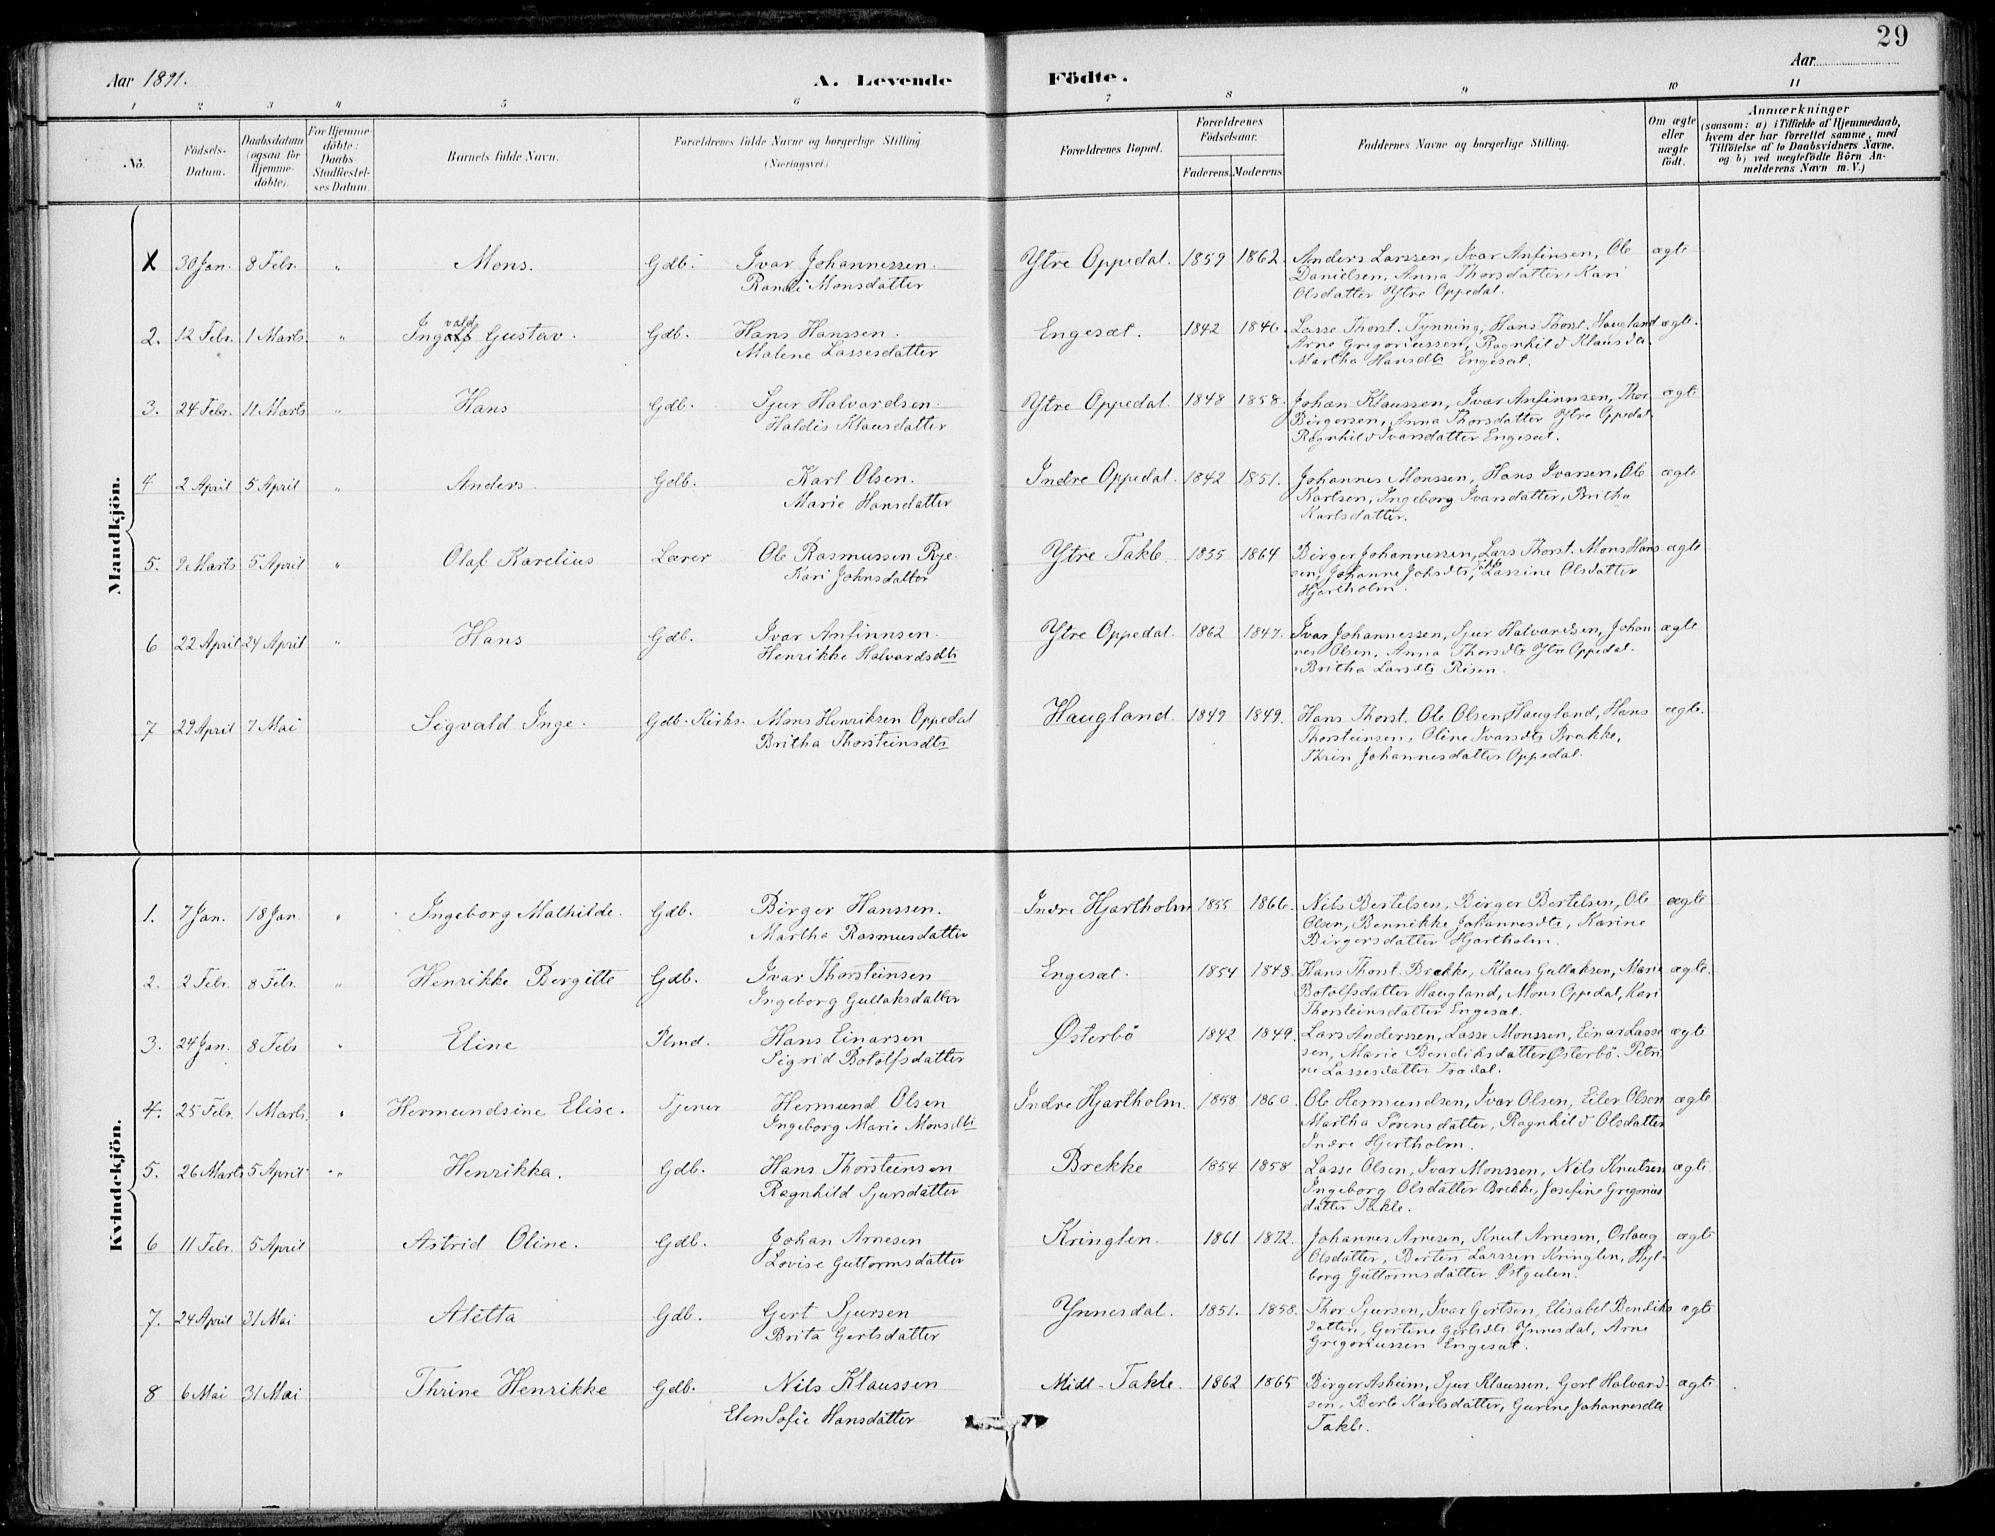 29
Aar 1891. A. Levende Födte. Aar
1 2 3 4 5 6 7 8 9 10 11
No. Födsels-Datum. Daabsdatum (ogsaa for Hjemmedöbte). For Hjemmedöbte: Daabs Stadfæstelses Datum. Barnets fulde Navn. Forældrenes fulde Navne og borgerlige Stilling (Næringsvei). Forældrenes Bopæl. Forældrenes Födselsaar. Faderens. Moderens. Faddernes Navne og borgerlige Stilling. Om ægte eller uægte födt. Anmærkninger (saasom: a) i Tilfælde af Hjemmedaab, hvem der har forrettet samme, med Tilföielse af to Daabsvidners Navne, og b) ved uægtefödte Börn Anmelderens Navn m. V.)
Mandkjön.
1 30 Jan. 8 Febr. " Mons. Gdb. Ivar Johannessen. Ytre Oppedal. 1859 1862. Anders Larssen, Ivar Anfinsen, Ole ægte
Randi Monsdatter Danielsen, Anna Thorsdatter, Kari
Olsdatter Ytre Oppedal.
2. 12 Febr. 1 Marts. " Ingvald Gustav. Gdb. Hans Hanssen. Engesæt. 1842 1846. Lasse Thorst. Tynning, Hans Thorst. Haugland ægte.
Malene Lassesdatter Arne Gregoriussen, Ragnhild Klausda.
Martha Hansdtr Engesæt.
3. 24 Febr. 11 Marts " Hans Gdb. Sjur Halvardsen. Ytre Oppedal. 1848 1858. Johan Klaussen, Ivar Anfinnsen, Thor ægte
Haldis Klausdatter Birgersen, Anna Thorsdatter Ytre Oppedal.
Ragnhild Ivarsdatter Engesæt.
4 2 April 5 April " Anders. Gdb. Karl Olsen. Indre Oppedal. 1842 1851. Johannes Monssen, Hans Ivarsen, Ole ægte
Marie Hansdatter Karlsen, Ingeborg Ivarsdatter, Britha
Karlsdatter.
5. 9 Marts 5 April " Olaf Karelius Lærer Ole Rasmussen Rye. Ytre Takle. 1855 1864 Birger Johannessen, Lars Thorst. Mons Hans ægte
Kari Johnsdatter sen, Johanne Johsdtr, Takle Lassine Olsdatter
Hjartholm.
6 22 April 24 April " Hans Gdb. Ivar Anfinnsen. Ytre Oppedal. 1862 1847. Ivar Johannessen, Sjur Halvardsen, Johan ægte
Henrikke Halvardsdtr nes Olsen, Anna Thorsdtr Ytre Oppedal.
Britha Larsdtr Risen.
7 29 April 7 Mai Sigvald Inge. Gdb. Kirks. Mons Henriksen Oppedal Haugland. 1849 1849. Hans Thorst. Ole Olsen Haugland, Hans ægte.
Britha Thorsteinsdtr Thorsteinsen, Oline Ivarsdtr Brække,
Thrin Johannesdatter Oppedal.
Kvindekjön.
1. 7 Jan. 18 Jan. " Ingeborg Mathilde. Gdb. Birger Hanssen. Indre Hjartholm 1855 1866. Nils Bertelsen, Birger Bertelsen, Ole ægte
Martha Rasmusdatter Olsen, Bennikke Johannesdtr, Karine
Birgersdatter Hjartholm.
2. 2 Febr. 8 Febr. " Henrikke Bergitte Gdb. Ivar Thorsteinsen Engesæt. 1854 1848. Hans Thorst. Brekke, Klaus Gullaksen, Marie ægte.
Ingeborg Gullaksdatter Botolfsdatter Haugland, Mons Oppedal, Kari
Thorsteinsdatter Engesæt.
3. 24 Jan. 8 Febr " Eline Plmd. Hans Einarsen Østerbö 1842 1849. Lars Anderssen, Lasse Monssen, Einar Lasse ægte
Sigrid Botolfsdatter sen, Marie Bendiksdatter Østerbö. Petri
ne Lassesdatter Trædal.
4. 25 Febr. 1 Marts. " Hermundsine Elise. Tjener Hermund Olsen Indre Hjartholm. 1858 1860. Ole Hermundsen, Ivar Olsen, Eiler Olsen ægte
Ingeborg Marie Monsdtr Martha Sørensdatter, Ragnhild Olsdatter
Indre Hjartholm.
5. 26 Marts 5 April " Henrikka. Gdb. Hans Thorsteinsen Brekke 1854 1858 Lasse Olsen, Ivar Monssen, Nils Knutsen ægte
Ragnhild Sjursdatter Ingeborg Olsdatter Brekke, Josefine Gregorius
datter Takle.
6 11 Febr. 5 April Astrid Oline. Gdb. Johan Arnesen Kringlen. 1861 1872. Johannes Arnesen, Knut Arnesen, Oslaug ægte
Lovise Guttormsdatter Olsdatter, Berten Larssen Kringlen, Hyl-
borg Guttormsdatter Østgulen.
7. 24 April 31 Mai Aletta Gdb. Gert Sjursen Ynnesdal. 1851. 1858. Thor Sjursen, Ivar Gertsen, Elisabet Bendiks ægte
Brita Gertsdatter datter, Gertine Gertsdtr Ynnesdal, Arne
Gregoriussen Engesæt.
8 6 Mai 31 Mai Thrine Henrikke Gdb. Nils Klaussen Midt-Takle. 1862 1865 Birger Asheim, Sjur Klaussen, Gert Halvard- ægte
Elen Sofie Hansdatter sen, Berte Karlsdatter, Gurine Johannesdtr
Takle.